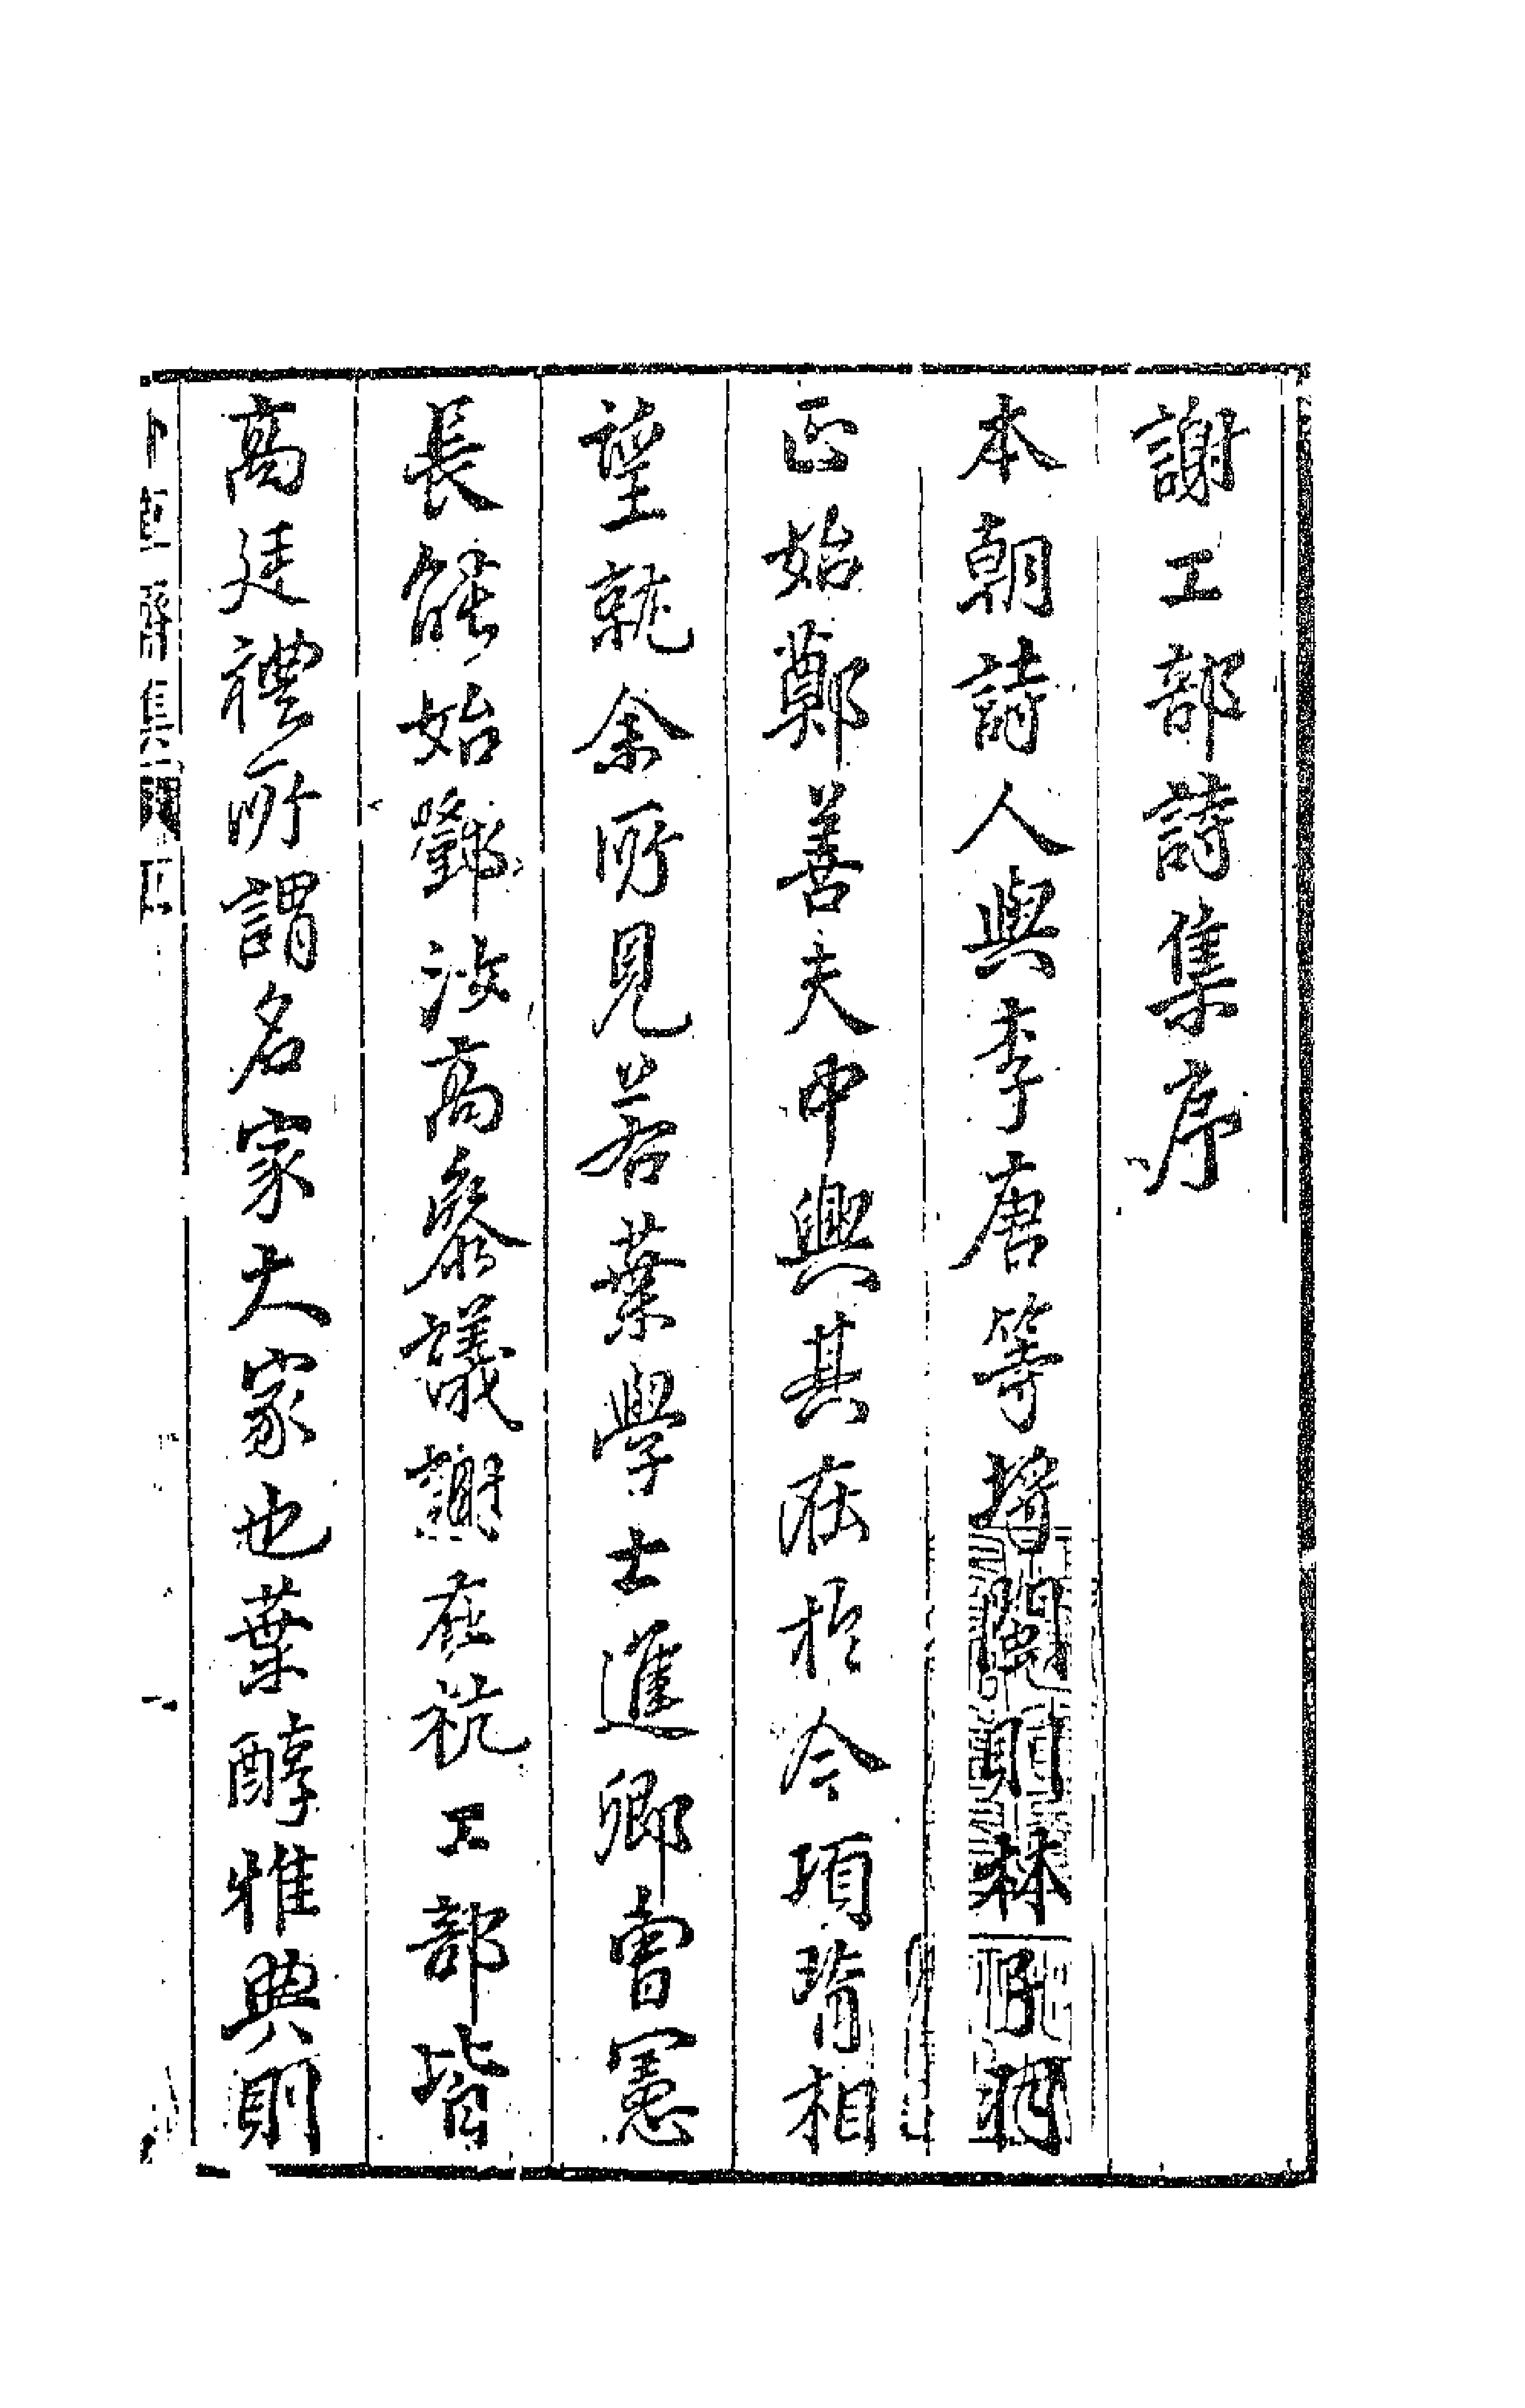 謝工部詩集序
本朝詩人與李唐等埒閩則林子羽
正始鄭善夫中興其在於今項背相
望就余所見若葉學士進卿曹憲
長能始鄧汝高參議謝在杭工部皆
高廷禮所謂名家大家也葉醇雅典則
小草齋集